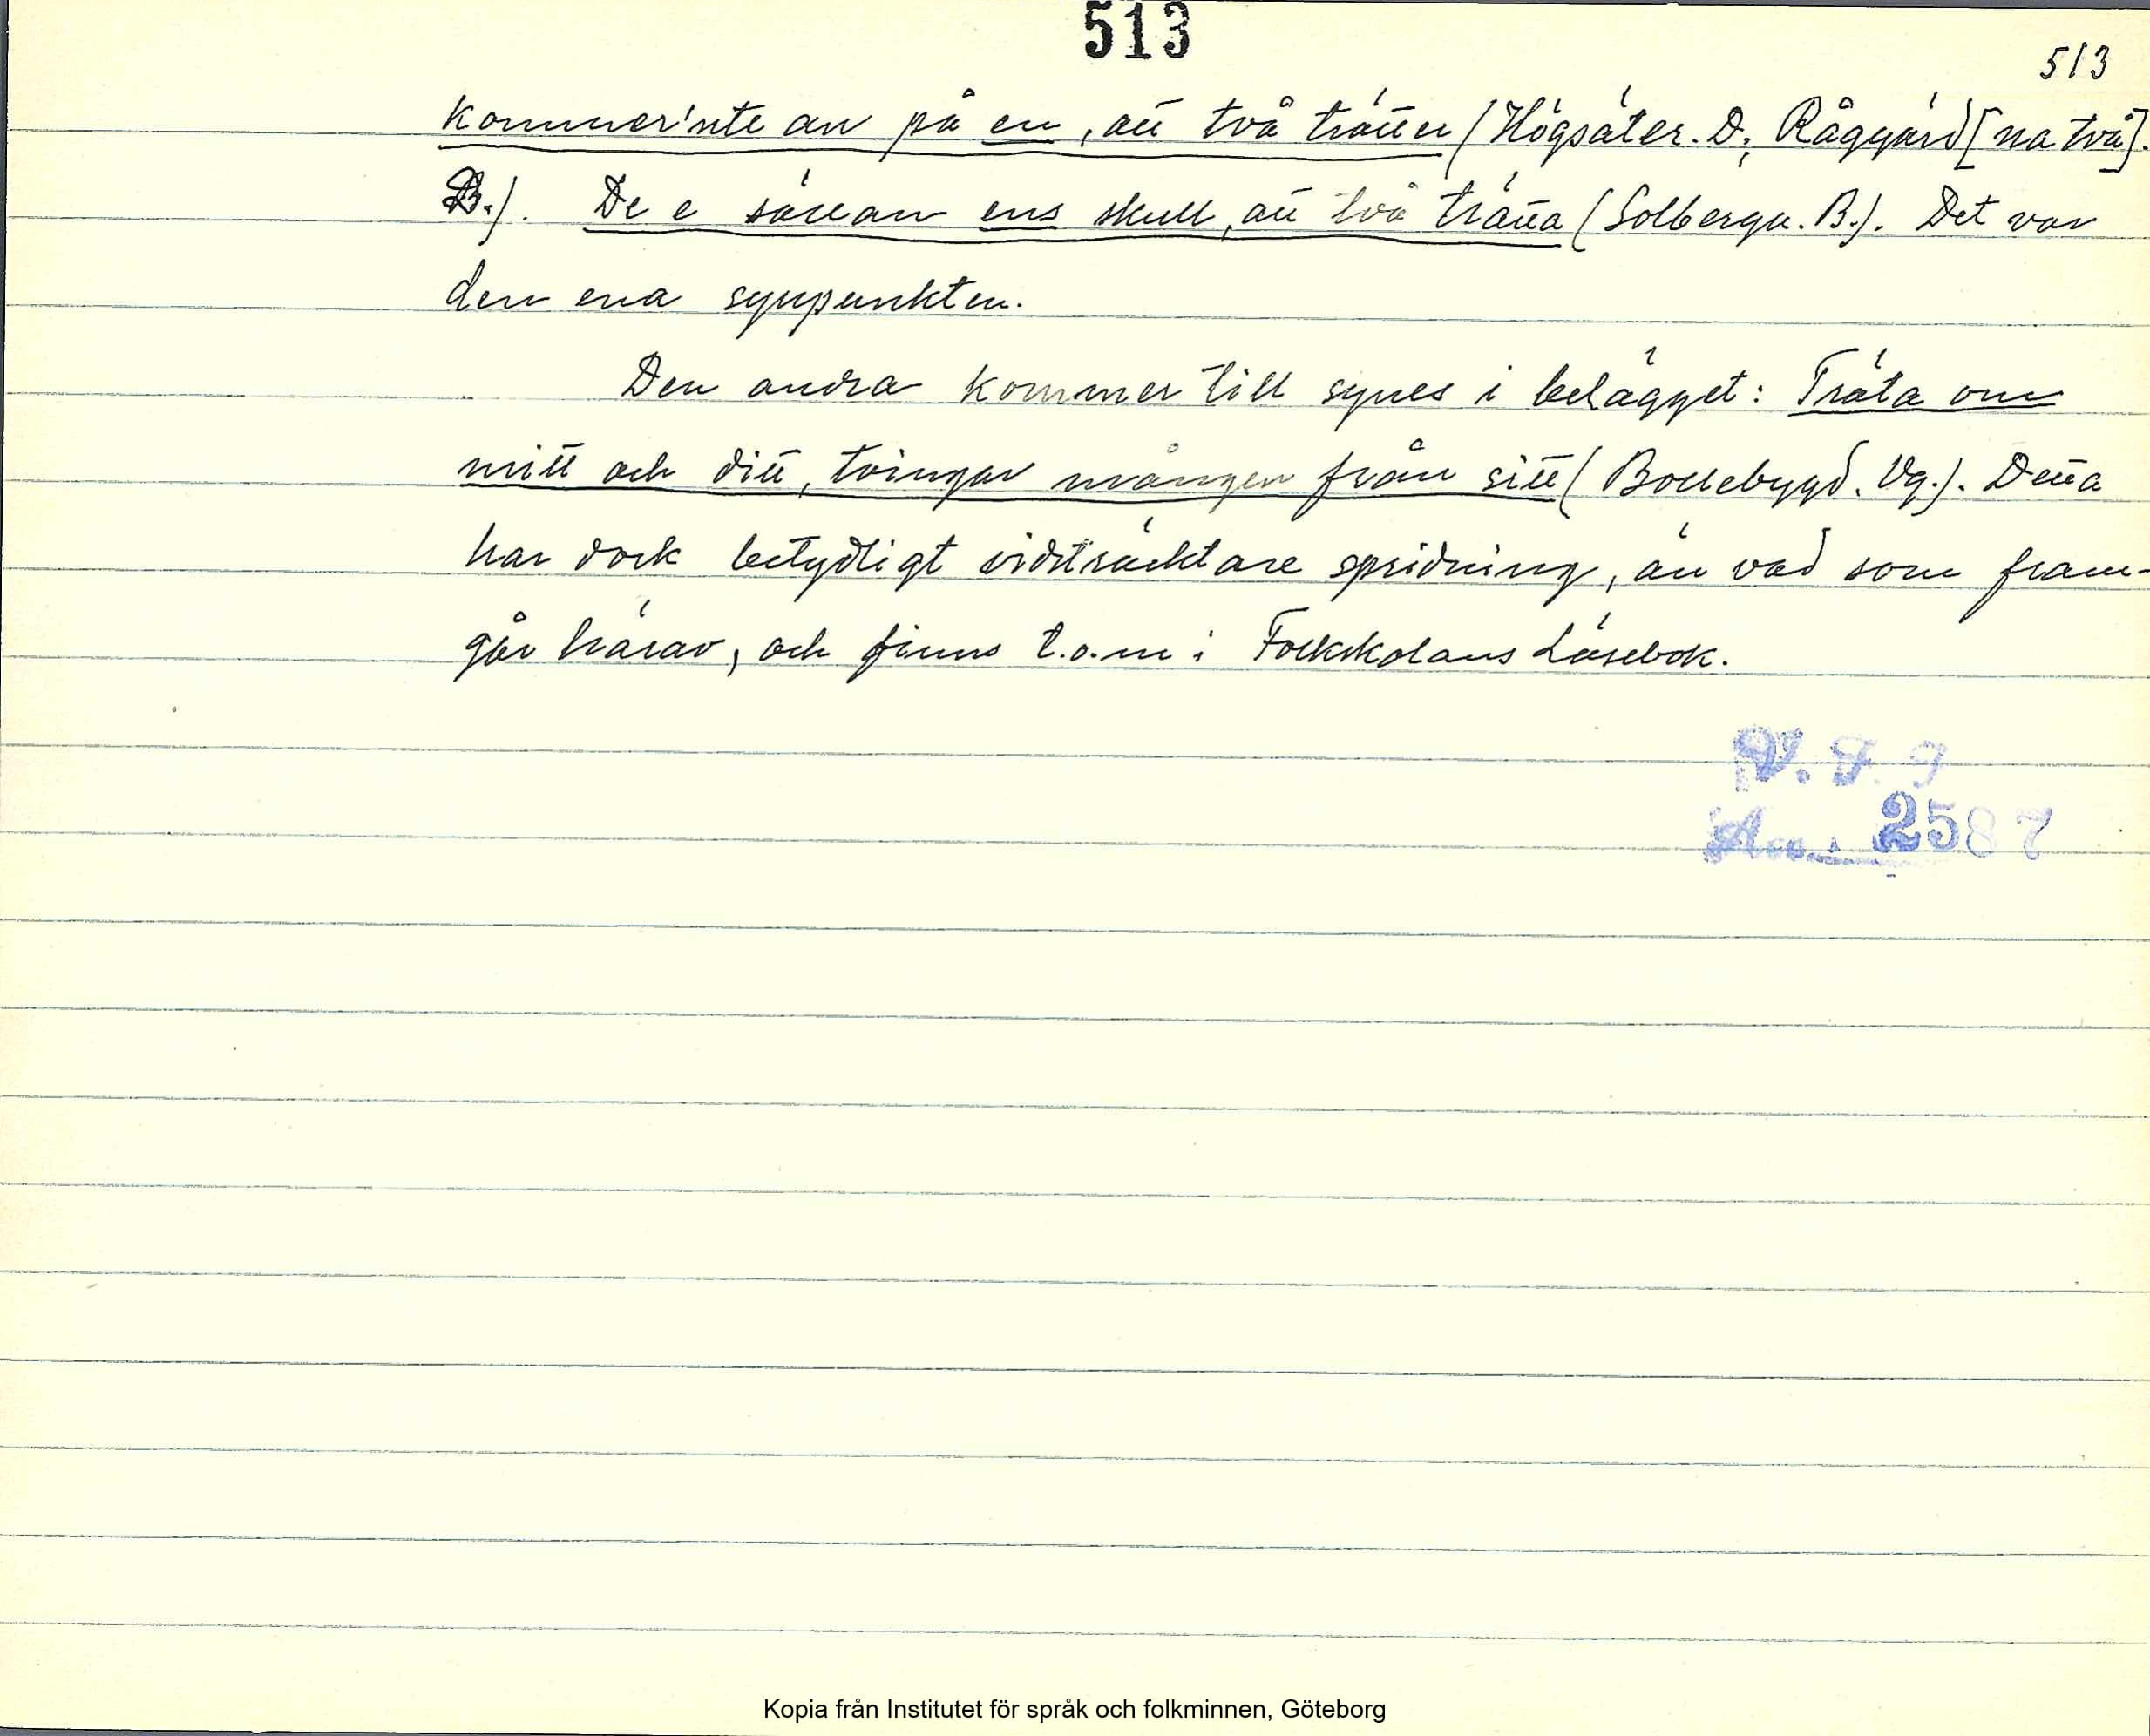 513
513
kommer'nte an på en, att två trätter (Högsäter. D; Råggärd [na två].
B.). De e sällan ens skull, att två trätta (Solberga. B.). Det var
den ena synpunkten.
Den andra kommer till synes i belägget: Träta om
mitt och ditt, tvingar mången från sitt (Bollebygd. Vg.). Detta
har dock betydligt vidsträcktare spridning, än vad som fram-
går härav, och finns t.o.m i Folkskolans Läsebok.
V. F. G
Acc. 2587
Kopia från Institutet för språk och folkminnen, Göteborg